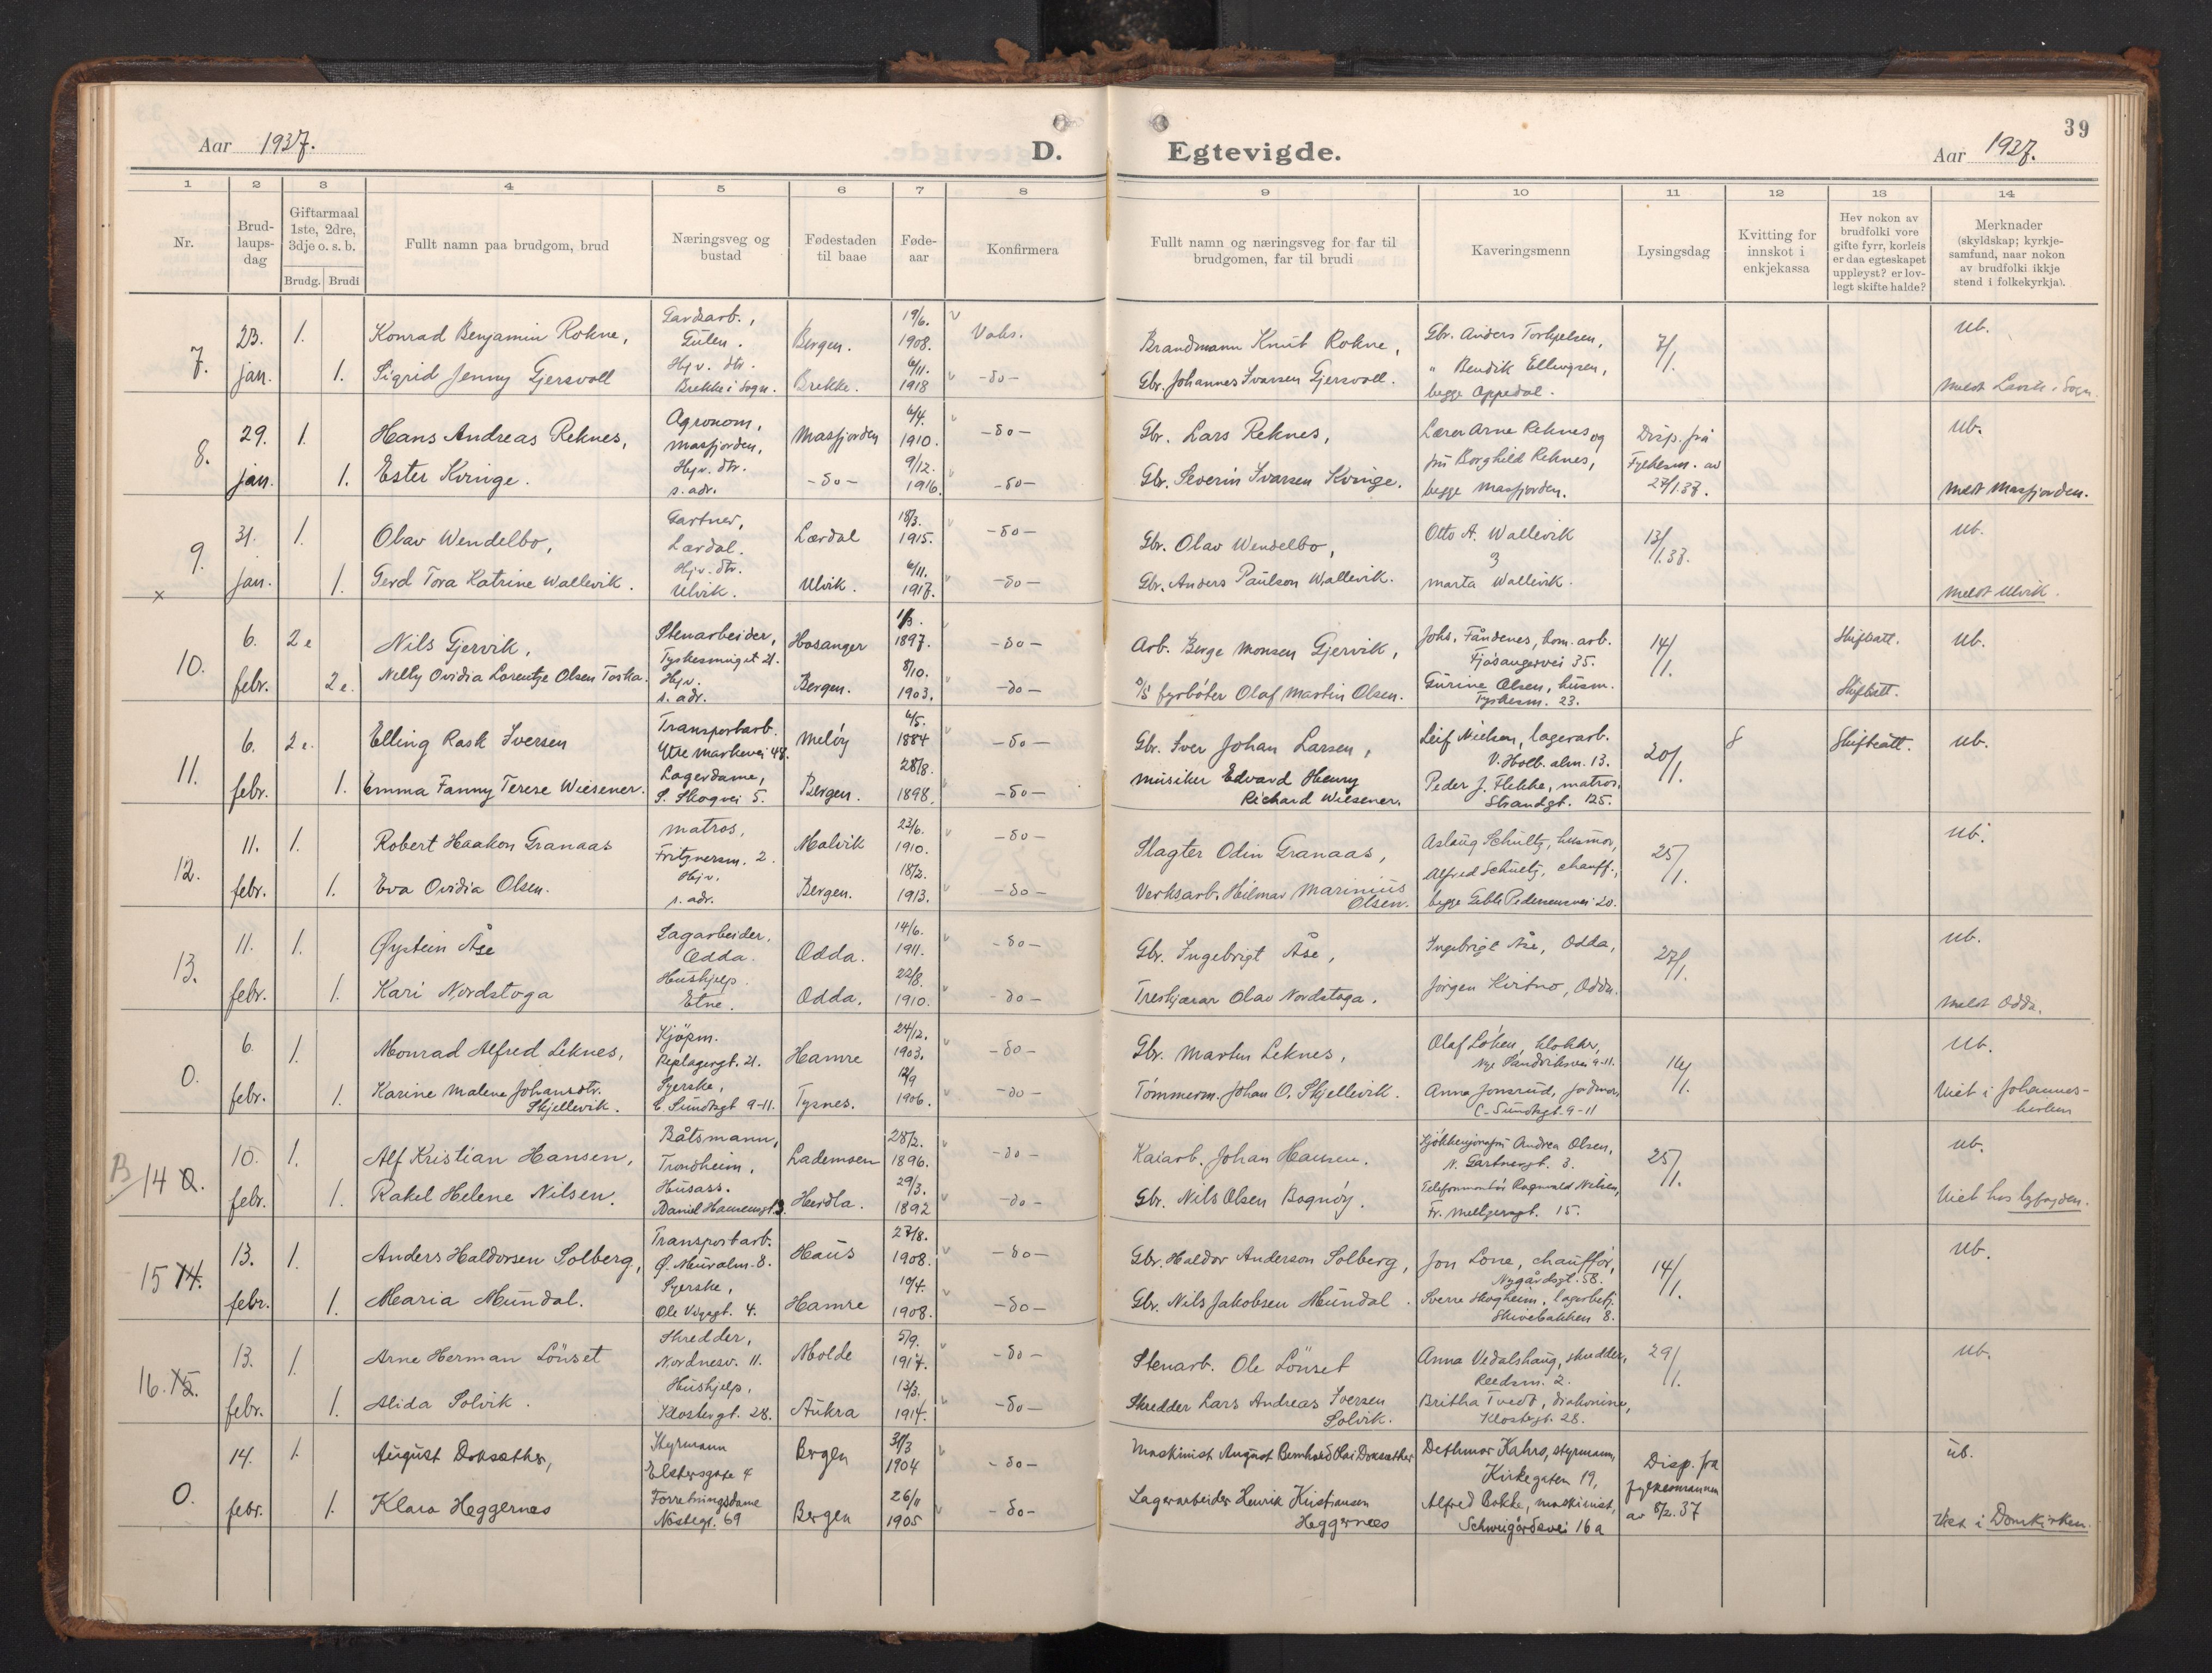 39
Aar 1937.
D. Egtevigde.
Aar 1937.
1 2 3 4 5 6 7 8 9 10 11 12 13 14
Nr.
Brud-
laups-
dag
Giftarmaal
1ste, 2dre,
3dje o. s. b.
Brudg. Brudi
Fullt namn paa brudgom, brud
Næringsveg og
bustad
Fødestaden
til baae
Føde-
aar
Konfirmera
Fullt namn og næringsveg for far til
brudgomen, far til brudi
Kaveringsmenn
Lysingsdag
Kvitting for
innskot i
enkjekassa
Hev nokon av
brudfolki vore
gifte fyrr, korleis
er daa egteskapet
uppløyst? er lov-
legt skifte halde?
Merknader
(skyldskap; kyrkje-
samfund, naar nokon
av brudfolki ikkje
stend i folkekyrkja).
7.
23. jan.
1. Konrad Benjamin Rokne,
Gardsarb.,
Gulen.
Bergen.
19/6.
1908.
Vaks.
Brandmann Knut Rokne,
Gbr. Anders Torkjelsen,
7/1.
ub.
1. Sigrid Jenny Gjersvoll
Hjv. dtr.
Brekke i Sogn.
Brekke.
6/11.
1918
-do-
Gbr. Johannes Ivarsen Gjersvoll.
" Bendik Ellingsen,
begge Oppedal.
meldt Lavik i Sogn.
8.
29. jan.
1. Hans Andreas Reknes,
Agronom,
Masfjorden,
Masfjorden
6/4.
1910.
-do-
Gbr. Lars Reknes,
Lærer Arne Reknes og
fru Borghild Reknes,
begge Masfjorden.
Disp. frå
Fylkesm. av
27/1.37.
ub.
1. Ester Kvinge.
Hjv. dtr.
s. adr.
-do-
9/12.
1916.
-do-
Gbr. Severin Ivarsen Kvinge.
meldt Masfjorden.
9.
x
31. jan.
1. Olav Wendelbo,
Gartner,
Lærdal.
Lærdal
18/3.
1915.
-do-
Gbr. Olav Wendelbo,
Otto A. Wallevik
13/1.37.
ub.
1. Gerd Tora Katrine Wallevik.
Hjv. dtr.
Ulvik.
Ulvik.
6/11.
1917.
-do-
Gbr. Anders Paulson Wallevik.
Marta Wallevik.
meldt Ulvik.
10.
6. febr.
2e Nils Gjervik,
Stenarbeider,
Tyskesmuget 21.
Hosanger
1/3.
1897.
-do-
Arb. Berge Monsen Gjervik,
Johs. Fåndenes, kom. arb.
Fjøsangervei 35.
14/1.
Skifteatt.
ub.
2e. Nelly Ovidia Lorentze Olsen Toska.
Hjv.
s. adr.
Bergen.
8/10.
1903.
-do-
D/S fyrbøter Olaf Martin Olsen.
Gurine Olsen, husm.
Tyskesm. 23.
Skifteatt.
11.
6. febr.
2e. Elling Rask Iversen
Transportarb.
Ytre Markevei 48.
Meløy
6/5.
1884
-do-
Gbr. Iver Johan Larsen,
Leif Nielsen, lagerarb.
V. Holb. alm. 13.
20/1.
Skifteatt.
ub.
1. Emma Fanny Terese Wiesener.
Lagerdame,
S. Skogvei 5.
Bergen.
28/8.
1898.
-do-
Musiker Edvard Henry
Richard Wiesener.
Peder J. Flekke, matros,
Strandgt. 125.
12.
11. febr.
1. Robert Haakon Granaas
Matros,
Fritznersm. 2.
Malvik
23/6.
1910.
-do-
Slagter Odin Granaas,
Aslaug Schultz, husmor,
Alfred Schultz, chauff.,
begge Geble Pedersensvei 20.
25/1.
ub.
1. Eva Ovidia Olsen.
Hjv.
s. adr.
Bergen.
18/2.
1913.
-do-
Verksarb. Hilmar Marinius
Olsen.
13.
11. febr.
1. Øystein Åse
Sagarbeider,
Odda.
Odda.
14/6.
1911.
-do-
Gbr. Ingebrigt Åse,
Ingebrigt Åse, Odda,
27/1.
ub.
1. Kari Nordstoga
Hushjelp.
Etne.
Odda.
22/8.
1910.
-do-
Treskjærar Olav Nordstoga.
Jørgen Kirtno, Odda.
meldt Odda.
0.
6. febr.
1. Monrad Alfred Leknes,
Kjøpm.
Replagergt. 21.
Hamre
24/12.
1903.
-do-
Gbr. Martin Leknes,
Olaf Løken, klokker,
Nye Sandviksvei 9-11.
14/1.
ub.
1. Karine Malene Johansdtr.
Skjellevik.
Syerske,
C. Sundtsgt 9-11.
Tysnes.
12/9
1906.
-do-
Tømmerm. Johan O. Skjellevik.
Anna Jonsrud, jordmor,
C. Sundtsgt. 9-11
Viet i Johannes-
kirken
B
14 0.
10. febr.
1. Alf Kristian Hansen,
Båtsmann,
Trondheim,
Lademoen
28/2.
1896.
-do-
Kaiarb. Johan Hansen.
Kjøkkensjef Andrea Olsen,
N. Gartnergt. 3.
25/1.
ub.
1. Rakel Helene Nilsen.
Husass.
Daniel Hansensgt 3.
Herdla.
29/3.
1892
-do-
Gbr. Nils Olsen Bognøy.
Telefonmontør Ragnvald Nilsen,
Fr. Meltzersgt. 15.
Viet hos byfogden.
15 14.
13. febr.
1. Anders Haldorsen Solberg,
Transportarb.
Ø. Muralm. 8.
Haus
27/8.
1908.
-do-
Gbr. Haldor Anderson Solberg,
Jon Lone, chauffør,
Nygårdsgt. 58.
14/1.
ub.
1. Maria Mundal.
Syerske,
Ole Vigsgt. 4.
Hamre
10/4.
1908.
-do-
Gbr. Nils Jakobsen Mundal.
Sverre Skogheim, lagerbetj.
Skivebakken 8.
16. 15.
13. febr.
1. Arne Herman Lönset
Skredder,
Nordnesv. 11.
Molde
5/9.
1917.
-do-
Stenarb. Ole Lönset
Anna Vedalshaug, skredder,
Reedsm. 2.
29/1.
ub.
1. Alida Solvik.
Hushjelp.
Klostergt. 28.
Aukra
13/3.
1914.
-do-
Skredder Lars Andreas Iversen
Solvik.
Britha Tvedt, diakonine,
Klostergt. 28.
0.
14. febr.
1. August Doksæther,
Styrmann
Elstersgate 4
Bergen
31/3
1904
-do-
Maskinist August Bernhard Kai Doksæther
Dethmar Kahrs, styrmann,
Kirkegaten 19,
Disp. fra
fylkesmannen
av 5/2. 37
ub.
1. Klara Heggernes
Forretningsdame
Nöstegt. 69
Bergen
26/11
1905
-do-
Lagerarbeider Henrik Kristiansen
Heggernes
Alfred Bakke, maskinist,
Schweigårdsvei 16a
Viet i Domkirken.